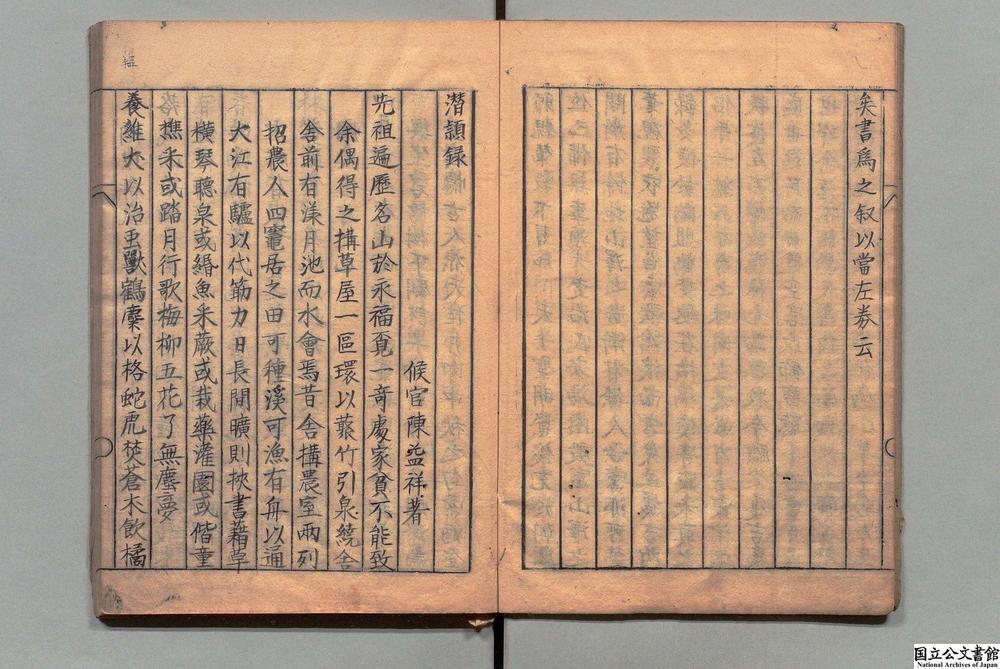 矣書為之叙以當左券云
潛頴録
候官陳益祥著
先祖遍歷名山於永福覔一竒處家貧不能致
余偶得之搆草屋一區環以藂竹引泉繞舎
舎前有渼月池而水會焉昔舎搆農室兩列
招農人四竈居之田可種溪可漁有舟以通
大江有驢以代筋力日長間曠則挾書藉草
横琴聽泉或緡魚采蕨或栽藥灌園或偕童
樵釆或踏月行歌梅柳五花了無塵夢
養維犬以治䖝獸鶴麋以格蛇虎焚蒼术飲橘
国立公文書館
National Archives of Japan